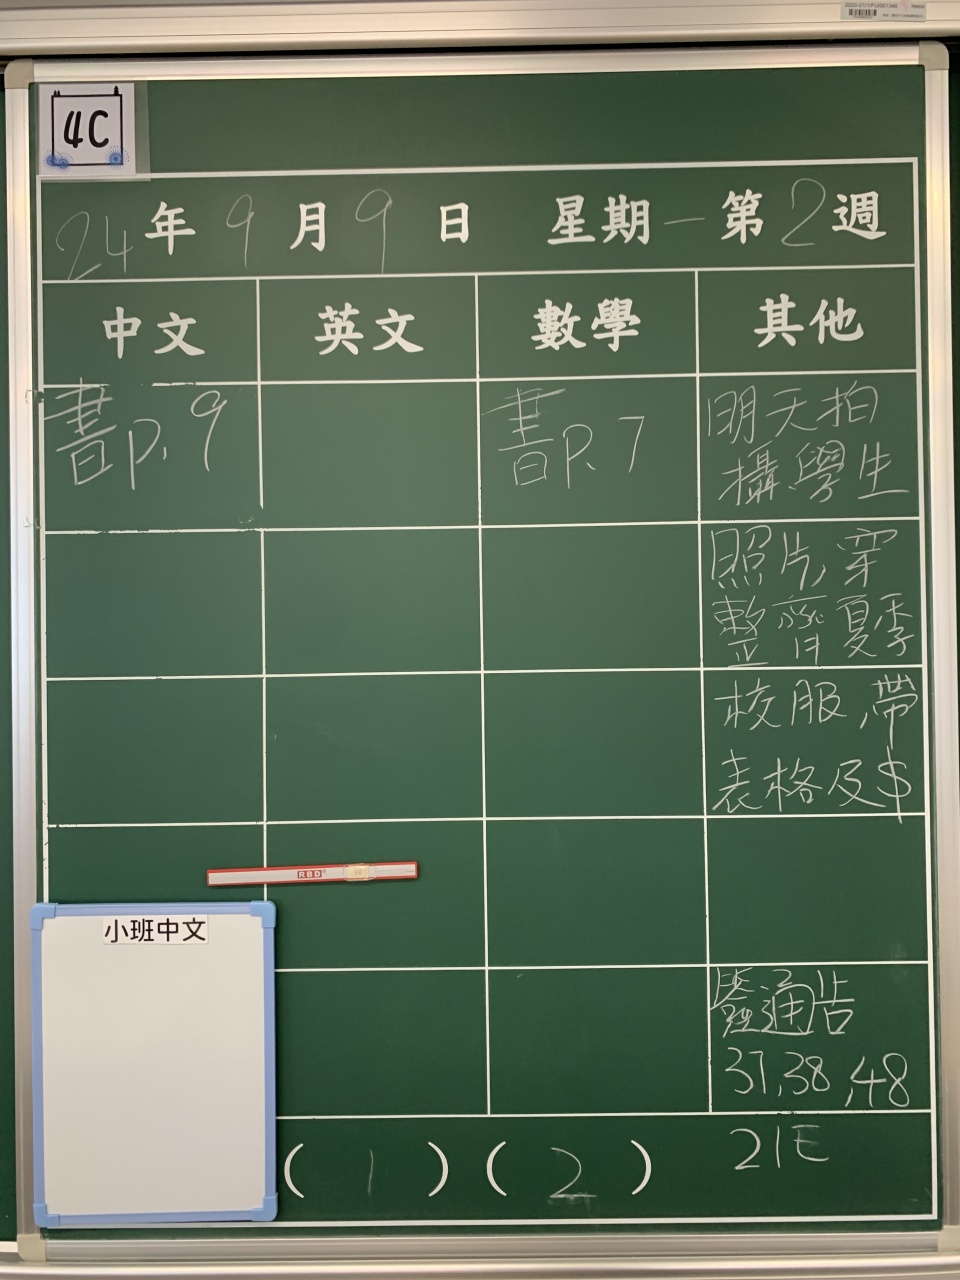 4C
24年9月9日 星期一 第2週
中文 英文 數學 其他
書P.9
書P.7
明天拍
攝學生
照片,穿
整齊夏季
校服,帶
表格及$
RBD
小班中文
簽通告
37,38,48
21E
(1)(2)